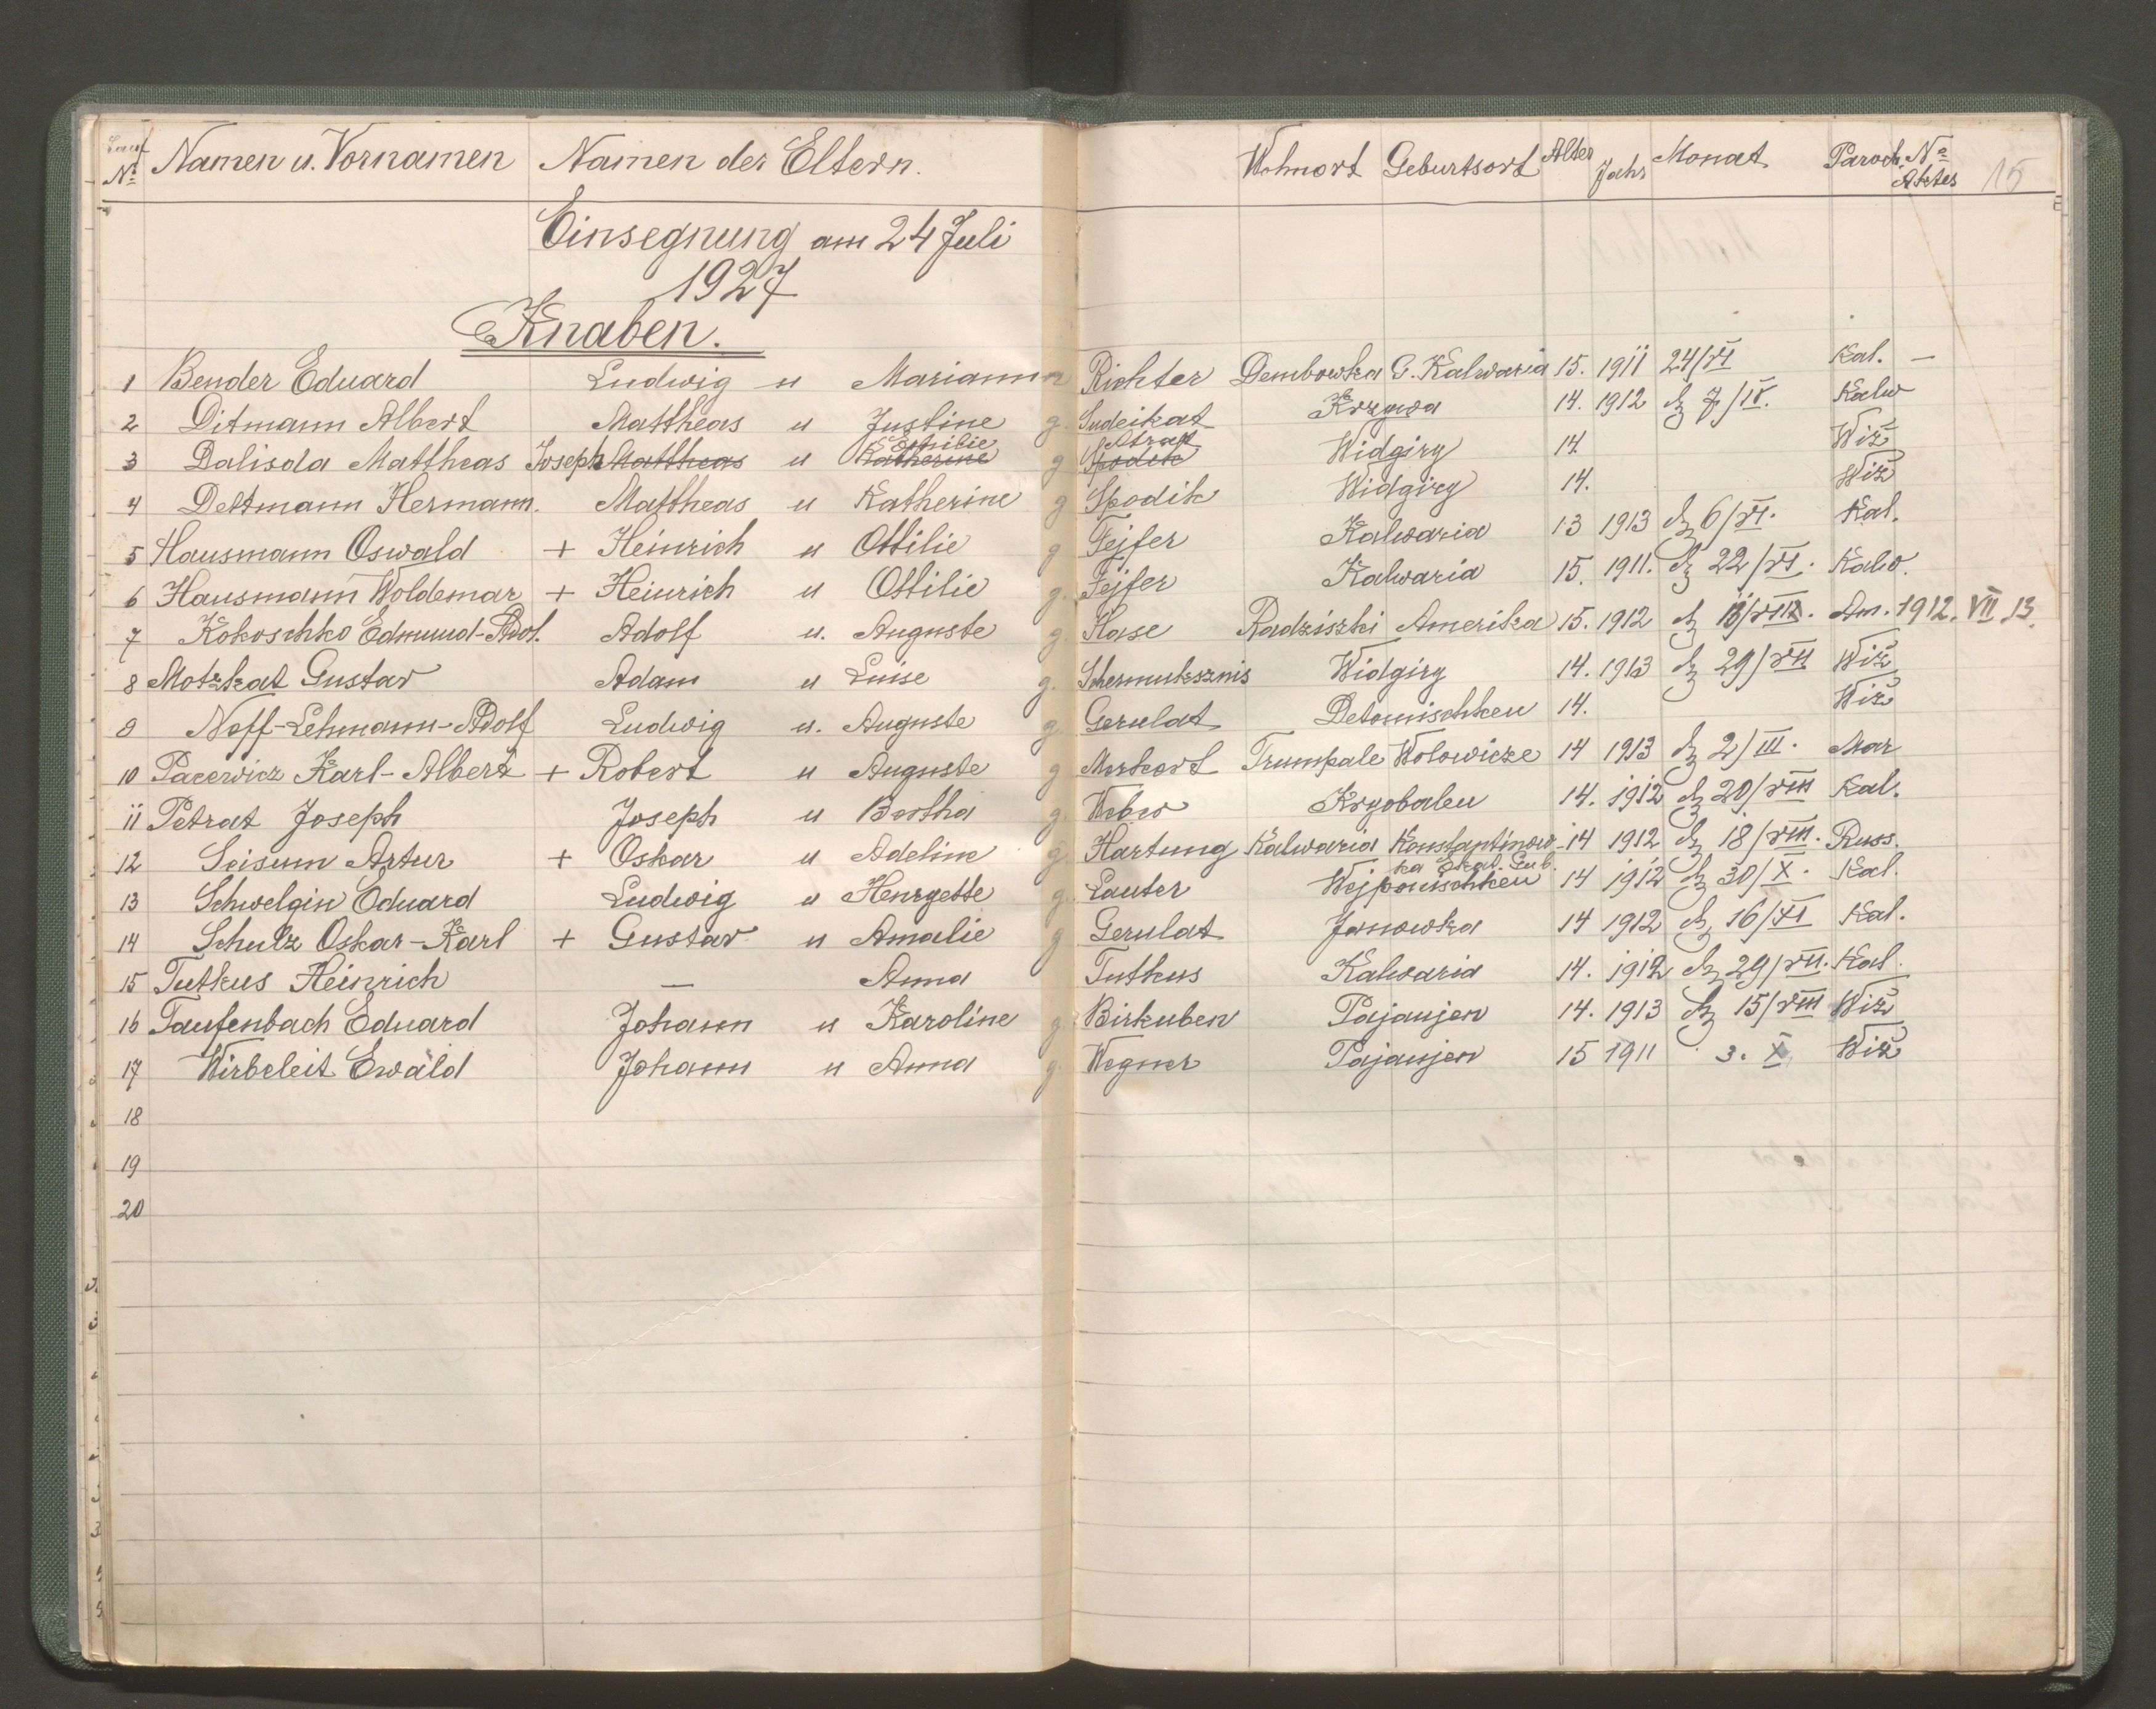 Lauf Nº Namen u. Vornamen Namen der Eltern. Wohnort Geburtsort Alter Jahr Monat Paroch. Nº Aktes 15
Einsegnung am 24 Juli
1927
Knaben.
1 Bender Eduard Ludwig u Marianna Richter Dembowka G. Kalwaria 15. 1911 24/VI Kal. —
2 Ditmann Albert Mattheas u Justine g. Sudeikat Krzywa 14. 1912 7/IV. Kalw
3 Dalisda Mattheas Joseph Mattheas u Katherine Ottilie g Spodik Widgiry 14. Wiż
4 Deltmann Hermann. Mattheas u Katherine g Spodik Widgiry 14. Wiż
5 Hausmann Oswald + Heinrich u Ottilie g Fejfer Kalwaria 13 1913 6/VI. Kal.
6 Hausmann Woldemar + Heinrich u Ottilie g. Fejfer Kalwaria 15. 1911. 22/VI. Kalw.
7 Kokoschko Edmund-Adol. Adolf u. Auguste g. Hase Radziszki Amerika 15. 1912 13/VII. Am. 1912. VII 13.
8 Motzkat Gustav Adam u Luise g. Schermuksznis Widgiry 14. 1913 29/VII Wiż
9 Noff-Lehmann-Adolf Ludwig u. Auguste g. Gerulat Detomischken 14. Wiż
10 Pacewicz Karl-Albert + Robert u Auguste g Morkort Trumpale Wolowicze 14 1913 2/III. Mar
11 Petrat Joseph Joseph u Bertha g. Weber Krygobalen 14. 1912 20/VIII Kal.
12 Seisum Artur + Oskar u Adeline g. Hartung Kalwaria Konstantinow- 14 1912 18/VIII. Russ.
ka Ekat. Gub.
13 Schwelgin Eduard Ludwig u Henryette g. Lauter Wejponischken 14 1912 30/X. Kal.
14 Schulz Oskar-Karl + Gustav u Amalie g Gerulat Janowka 14 1912 16/XI Kal.
15 Tutkus Heinrich — Anna Tutkus Kalwaria 14. 1912 29/VII. Kal.
16 Taufenbach Eduard Johann u Karoline g Birkuben Pajaujen 14. 1913 15/VIII Wiż
17 Wirbeleit Ewald Johann u Anna g. Wegner Pajaujen 15 1911 3. X Wiż
18
19
20